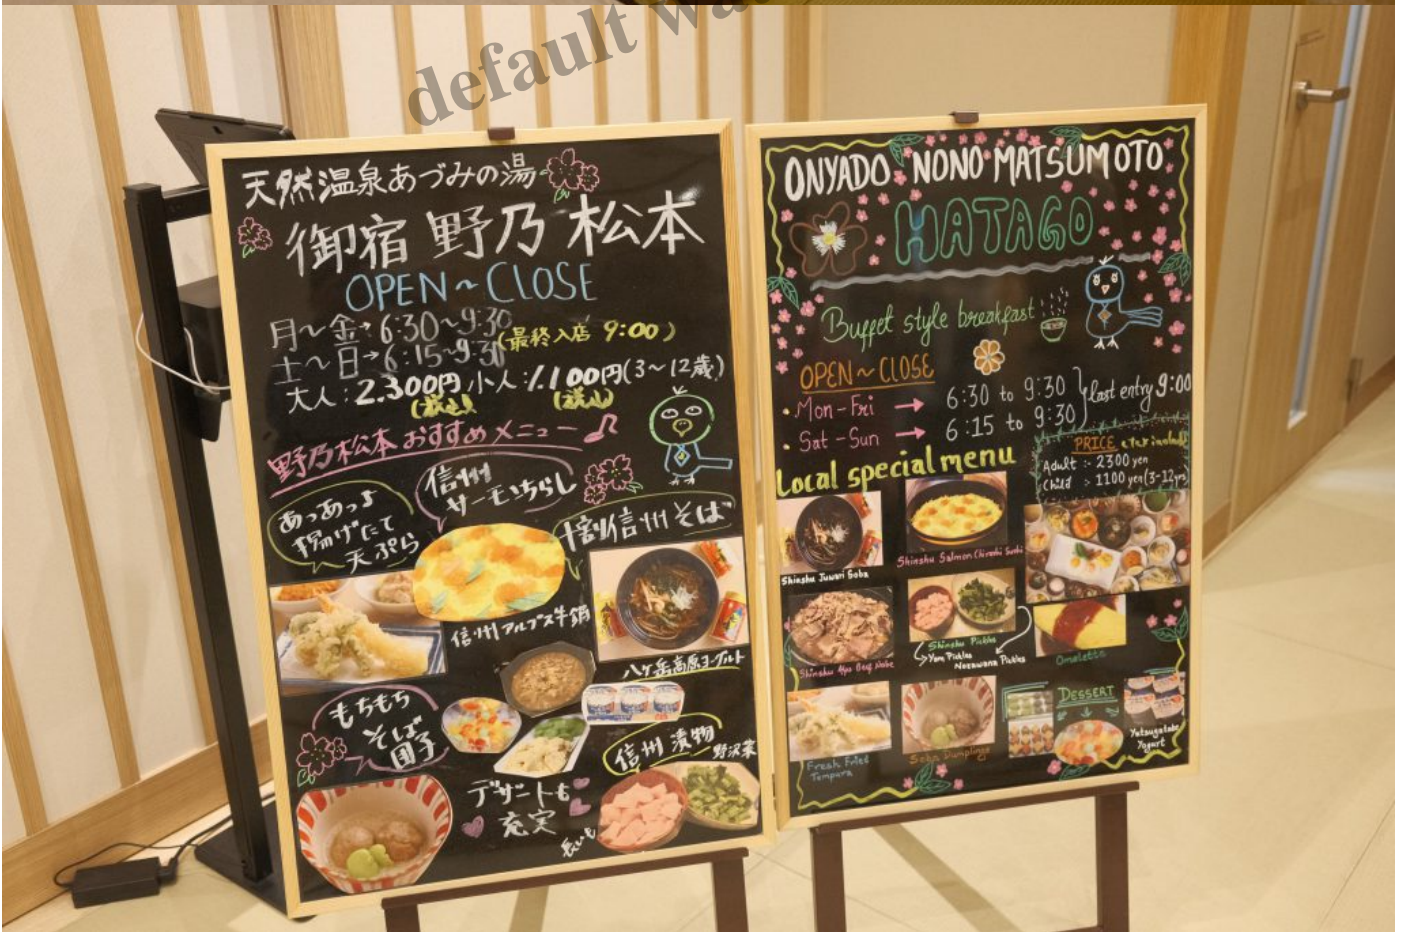 default wa
天然温泉あづみの湯
御宿 野乃 松本
OPEN~CLOSE
月~金→6:30~9:30
土~日→6:15~9:30
(最終入店 9:00)
大人:2.300円 小人:1.100円(3~12歳)
(税込) (税込)
野乃松本おすすめメニュー
あっあっよ
揚げにて
天ぷら
信州
サーモンちらし
十割信州そば
信州アルプス牛鍋
八ヶ岳高原ヨーグルト
もちもち
そば
団子
信州 漬物
野沢菜
デザートも
充実
長いも
ONYADO NONO MATSUMOTO
HATAGO
Buffet style breakfast
OPEN~CLOSE
Mon-Fri → 6:30 to 9:30
Sat-Sun → 6:15 to 9:30
last entry 9:00
PRICE
Adult :- 2300 yen
Child :- 1100 yen (3-12yrs)
Local special menu
Shinshu Juwari Soba
Shinshu Salmon Chirashi Sushi
Shinshu Alps Beef Nabe
Shinshu Pickles
Yam Pickles
Nozawana Pickles
Omelette
Fresh Fried
Tempura
Soba Dumplings
DESSERT
Yatsugatake
Yogurt